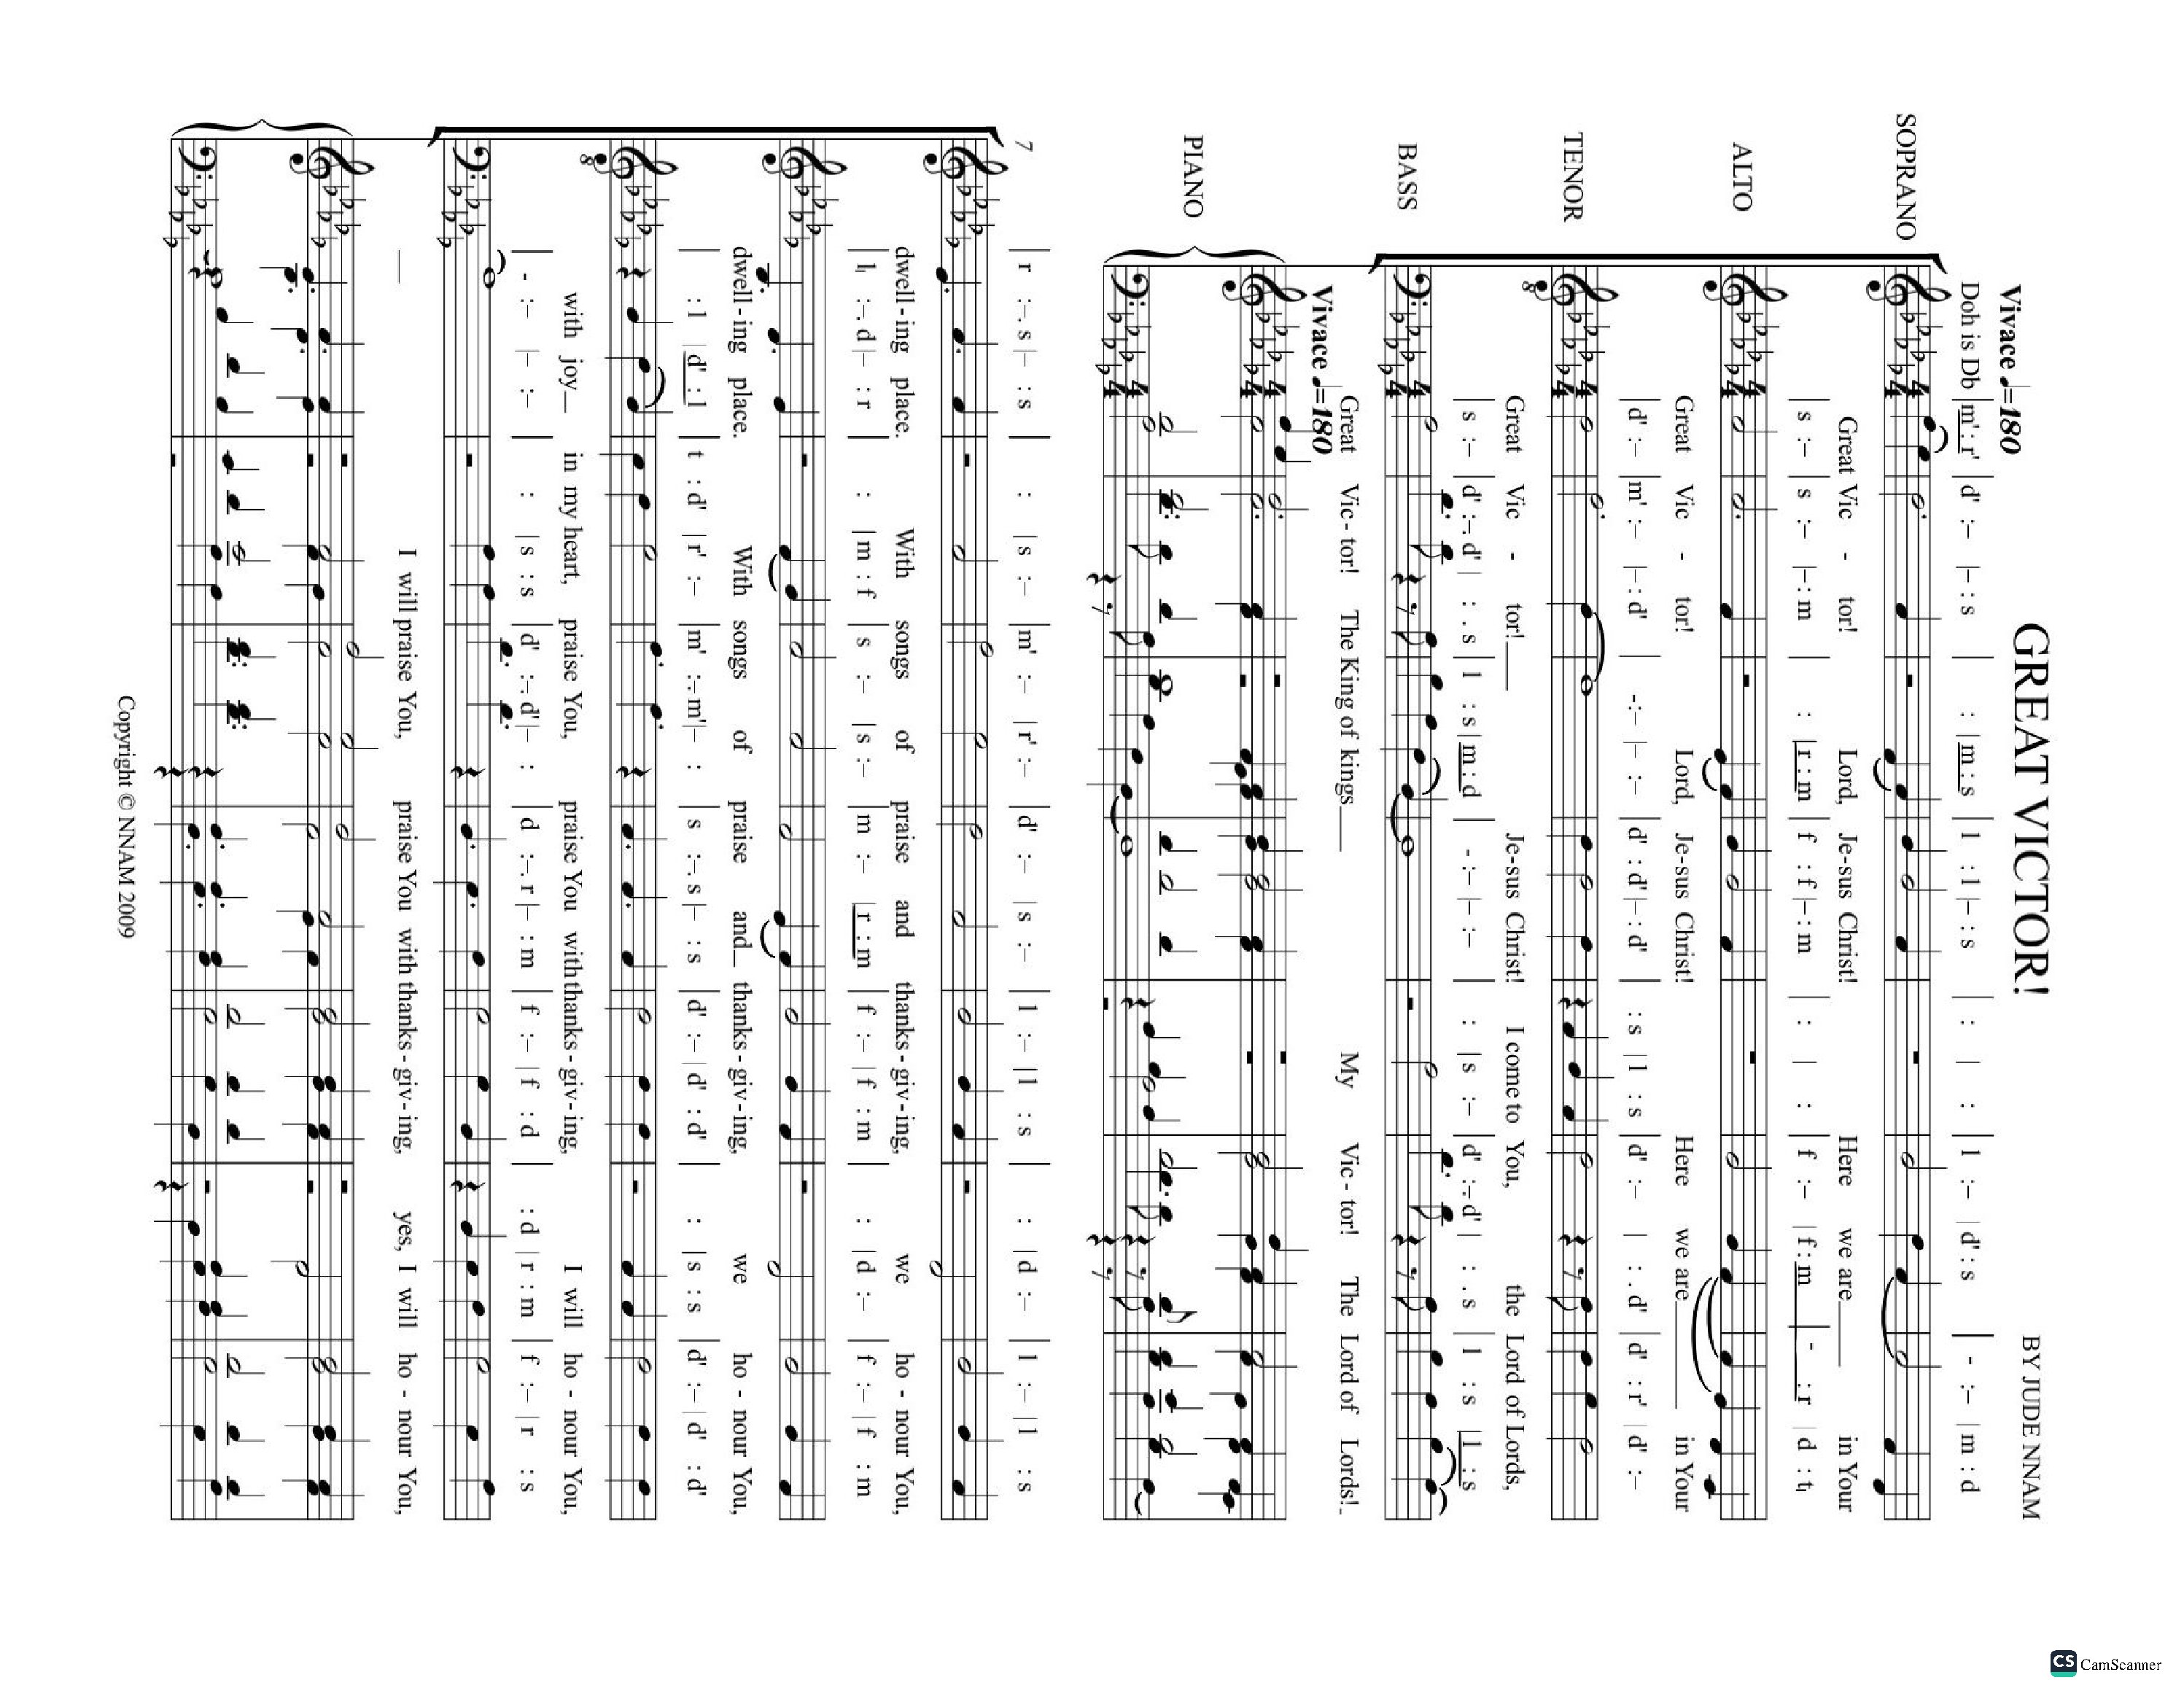 GREAT VICTOR!
BY JUDE NNAM
Vivace ♩=180
Doh is Db |m' : r' | d' :– |– : s | : |m : s | l : l |– : s | : | : | l :– |d' : s | - :– |m : d
SOPRANO
Great Vic - tor! Lord, Je-sus Christ! Here we are___ in Your
s :– | s :– |– : m | : |r : m | f : f |– : m | : | : | f :– |f : m | - : r |d : t,
ALTO
Great Vic - tor! Lord, Je-sus Christ! Here we are___ in Your
d' :– | m' :– |– : d' | -:– |– :– | d' : d' |– : d' | : s |l : s | d' :– | : . d' | d' : r' |d' :–
TENOR
Great Vic - tor!___ Je-sus Christ! I come to You, the Lord of Lords,
s :– | d' :–. d' | : . s | l : s |m : d | - :– |– :– | : |s :– | d' :–. d' | : . s | l : s |l : s
BASS
Great Vic - tor! The King of kings___ My Vic - tor! The Lord of Lords!_
Vivace ♩=180
PIANO
7
| r :–. s |– : s | : |s :– | m' :– |r' :– | d' :– |s :– | l :– |l : s | : |d :– | l :– |l : s
dwell - ing place. With songs of praise and thanks - giv - ing, we ho - nour You,
| l, :–. d |– : r | : |m : f | s :– |s :– | m :– |r : m | f :– |f : m | : |d :– | f :– |f : m
dwell - ing place. With songs of praise and_ thanks - giv - ing, we ho - nour You,
| : l |d' : l | t : d' |r' :– | m' :–. m' |– : | s :–. s |– : s | d' :– |d' : d' | : |s : s | d' :– |d' : d'
with joy_ in my heart, praise You, praise You with thanks - giv - ing, I will ho - nour You,
| - :– |– :– | : |s : s | d' :–. d' |– : | d :–. r |– : m | f :– |f : d | : d |r : m | f :– |r : s
___ I will praise You, praise You with thanks - giv - ing, yes, I will ho - nour You,
Copyright © NNAM 2009
CS CamScanner